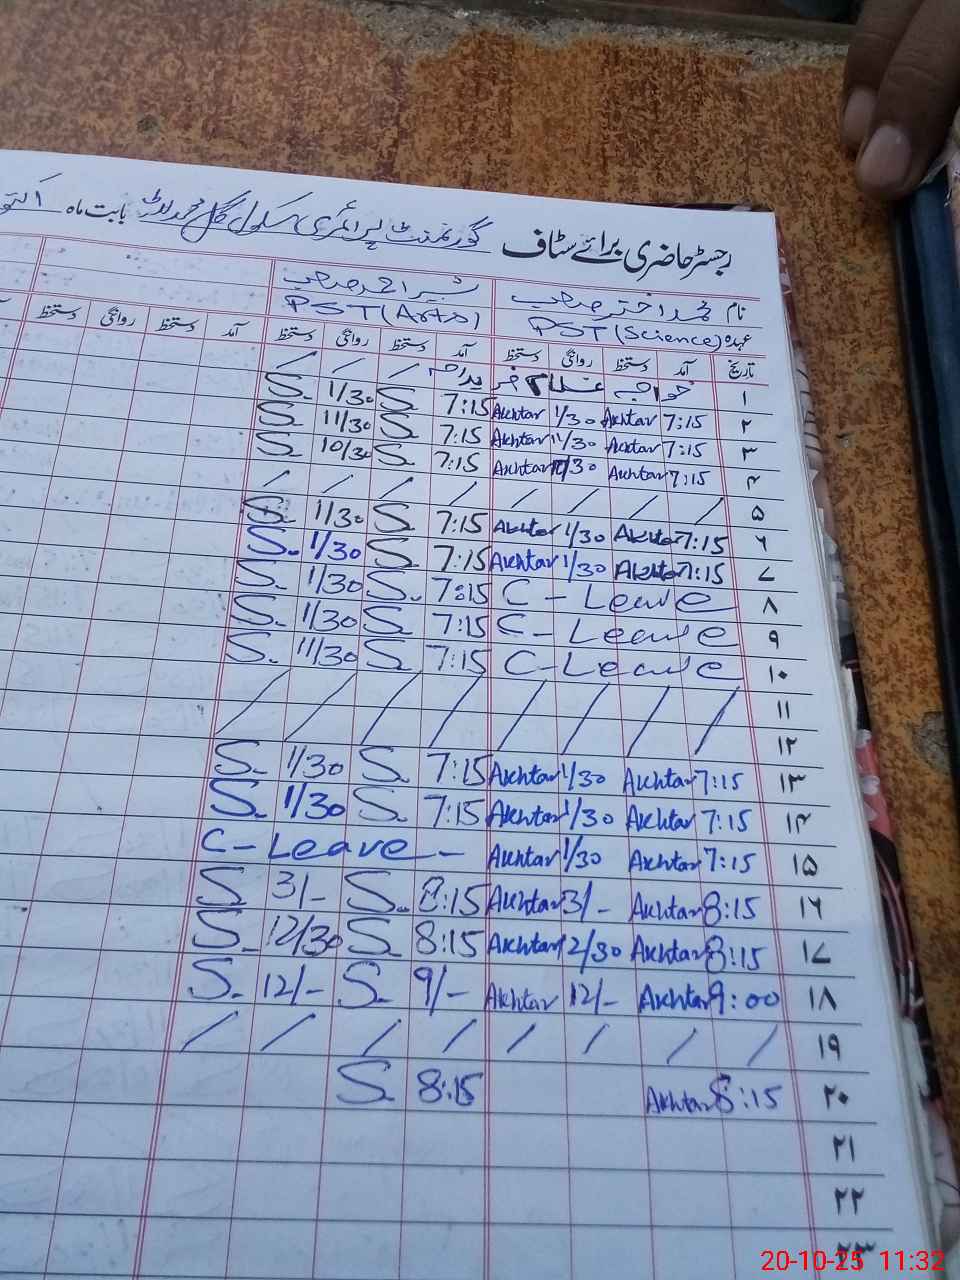 رجسٹر حاضری برائے سٹاف گورنمنٹ پرائمری سکول گل محمد بابت ماہ
نام محمد اختر صاحب شبیر احمد صاحب
عہدہ PST (Science) PST (Arts)
تاریخ آمد دستخط روانگی دستخط آمد دستخط روانگی دستخط آمد دستخط روانگی دستخط
۱ خواجہ غلام / / /
۲ 7:15 Akhtar 1/30 Akhtar 7:15 S. 1/30 S.
۳ 7:15 Akhtar 11/30 Akhtar 7:15 S. 11/30 S.
۴ 7:15 Akhtar 10/30 Akhtar 7:15 S. 10/30 S.
۵ / / / / / / / /
۶ 7:15 Akhtar 1/30 Akhtar 7:15 S. 11/30 S.
۷ 7:15 Akhtar 1/30 Akhtar 7:15 S. 1/30 S.
۸ C - Leave 7:15 S. 1/30 S.
۹ C - Leave 7:15 S. 1/30 S.
۱۰ C - Leave 7:15 S. 11/30 S.
۱۱ / / / / / / / /
۱۲
۱۳ 7:15 Akhtar 1/30 Akhtar 7:15 S. 1/30 S.
۱۴ 7:15 Akhtar 1/30 Akhtar 7:15 S. 1/30 S.
۱۵ 7:15 Akhtar 1/30 Akhtar C - Leave -
۱۶ 8:15 Akhtar 3/- Akhtar 8:15 S. 3/- S
۱۷ 8:15 Akhtar 12/30 Akhtar 8:15 S. 12/30 S.
۱۸ 9:00 Akhtar 12/- Akhtar 9/- S. 12/- S.
۱۹ / / / / / / / /
۲۰ 8:15 Akhtar 8:15 S.
۲۱
۲۲
۲۳
20-10-25 11:32